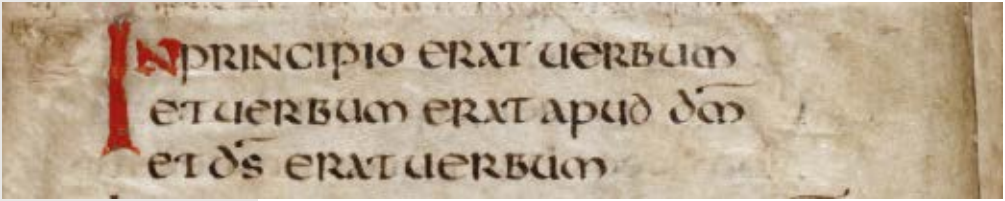 IN PRINCIPIO ERAT UERBUM
ET UERBUM ERAT APUD DM̄
ET DS̄ ERAT UERBUM